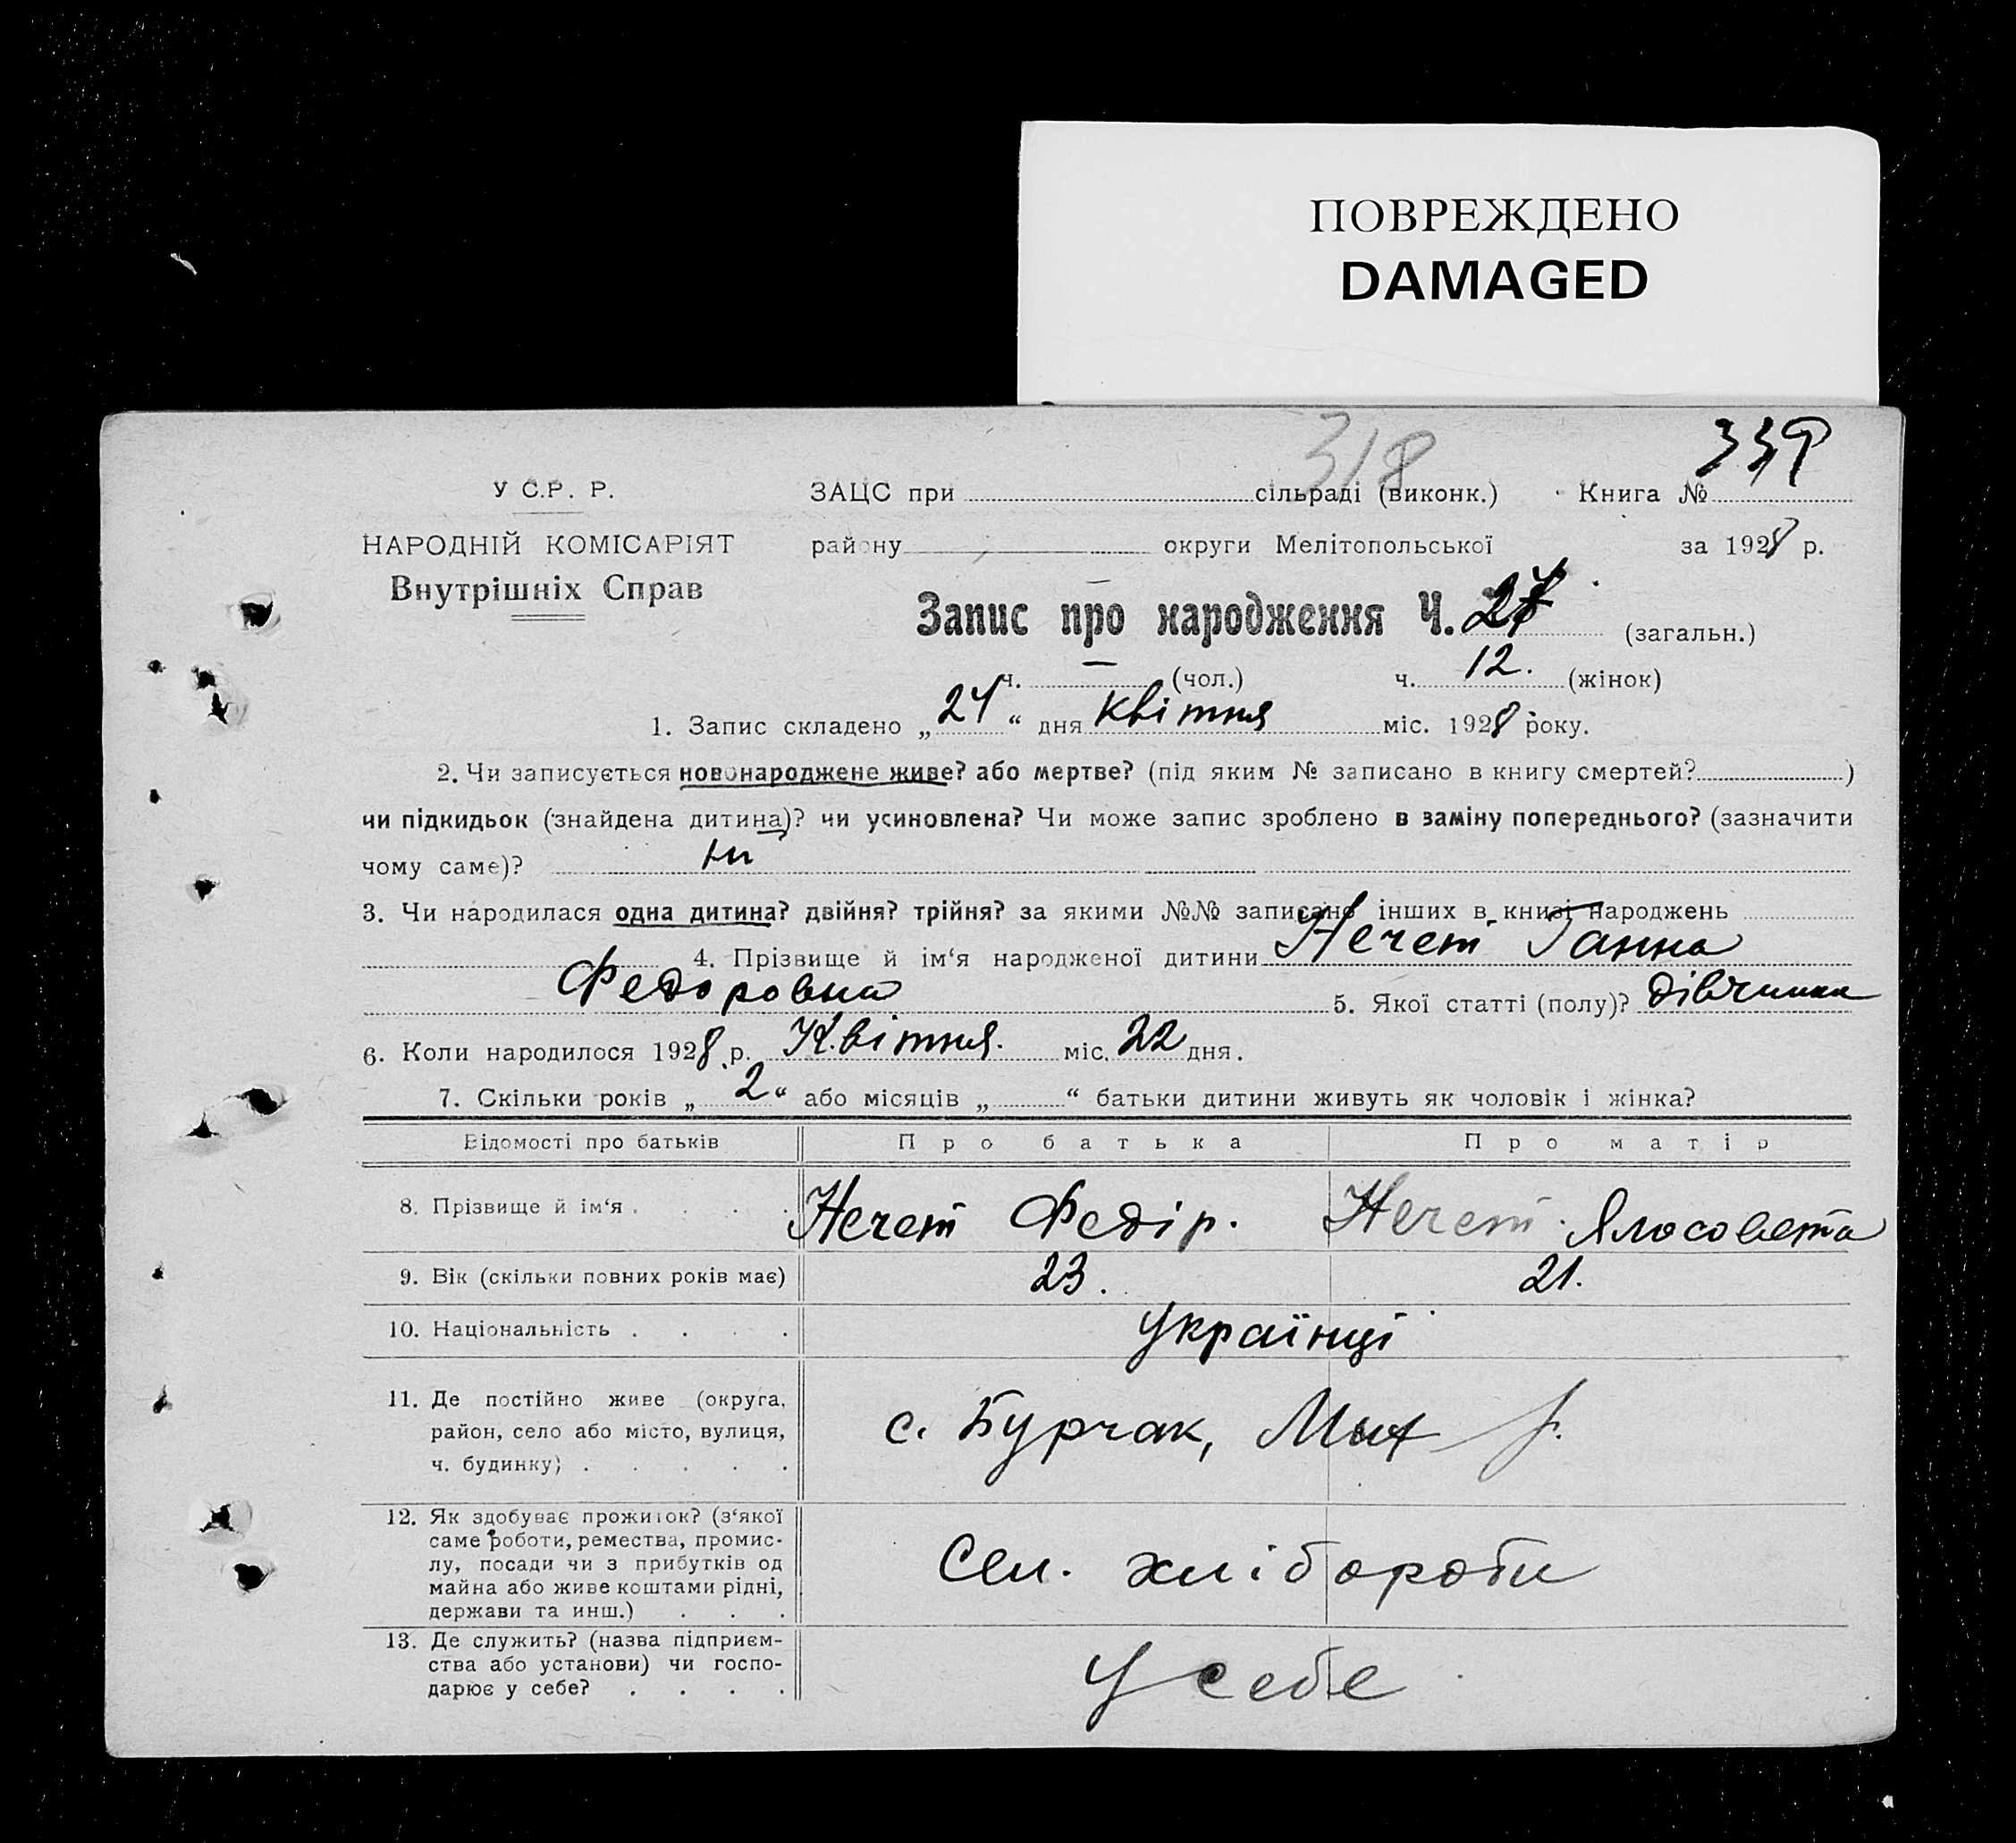 ПОВРЕЖДЕНО
DAMAGED
318
339
У С.Р. Р.
ЗАЦС при сільраді (виконк.) Книга №
НАРОДНІЙ КОМІСАРІЯТ
району округи Мелітопольської за 1928 р.
Внутрішніх Справ
Запис про народження Ч. 27 (загальн.)
ч. — (чол.) ч. 12. (жінок)
1. Запис складено „24“ дня квітня міс. 1928 року.
2. Чи записується новонароджене живе? або мертве? (під яким № записано в книгу смертей? )
чи підкидьок (знайдена дитина)? чи усиновлена? Чи може запис зроблено в заміну попереднього? (зазначити
чому саме)? ні
3. Чи народилася одна дитина? двійня? трійня? за якими №№ записано інших в книзі народжень
4. Прізвище й ім‘я народженої дитини Нечет Ганна
Федоровна 5. Якої статті (полу)? дівчинка
6. Коли народилося 1928 р. Квітня міс. 22 дня.
7. Скільки років „2“ або місяців „ “ батьки дитини живуть як чоловік і жінка?
Відомості про батьків Про батька Про матір
8. Прізвище й ім‘я . . . . Нечет Федір. Нечет Ялосовета
9. Вік (скільки повних років має) 23. 21.
10. Національність . . . . Українці
11. Де постійно живе (округа,
район, село або місто, вулиця, с. Бурчак, Мих р.
ч. будинку) . . . . .
12. Як здобуває прожиток? (з‘якої
саме роботи, ремества, промис-
лу, посади чи з прибутків од Сел. хлібороби
майна або живе коштами рідні,
держави та инш.) . . .
13. Де служить? (назва підприєм-
ства або установи) чи госпо- У себе
дарює у себе? . . . .